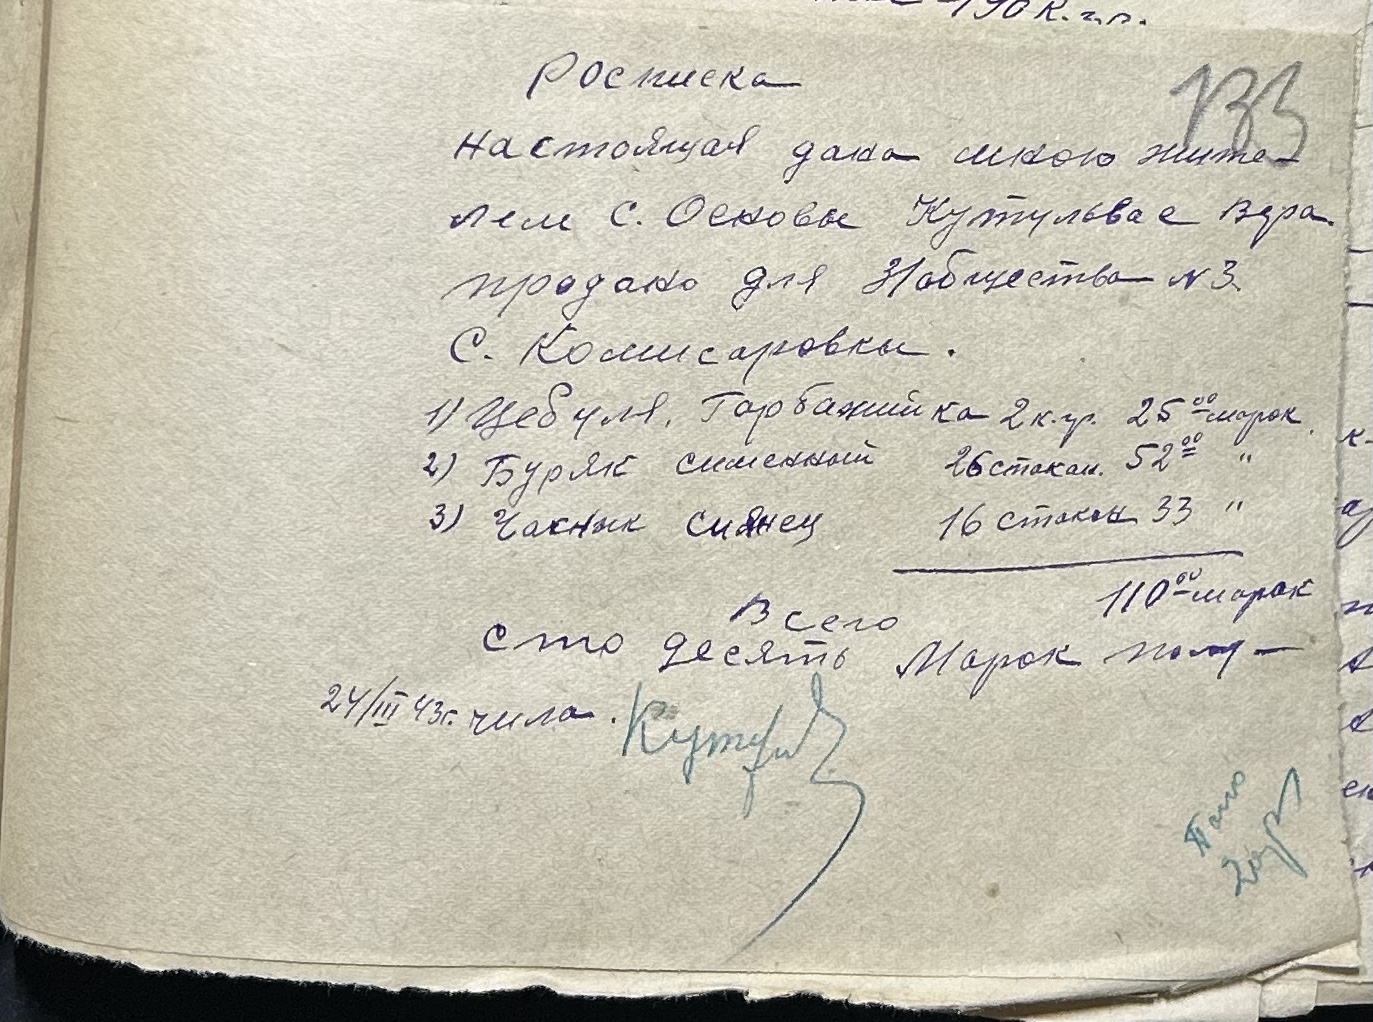 133
Росписка
Настоящая дана мною жите-
лем с. Основы Кутульвас Вера
продано для З/общества № 3
С. Комисаровки.
1) Цебуля, Гарбажийка 2 к.гр. 25 00 марок.
2) Буряк сименный 26 стокан. 52 00 "
3) Часнык сиянец 16 стокан 33 "
110 00 марок
Всего
сто десять Марок полу-
24/III 43г. чила.